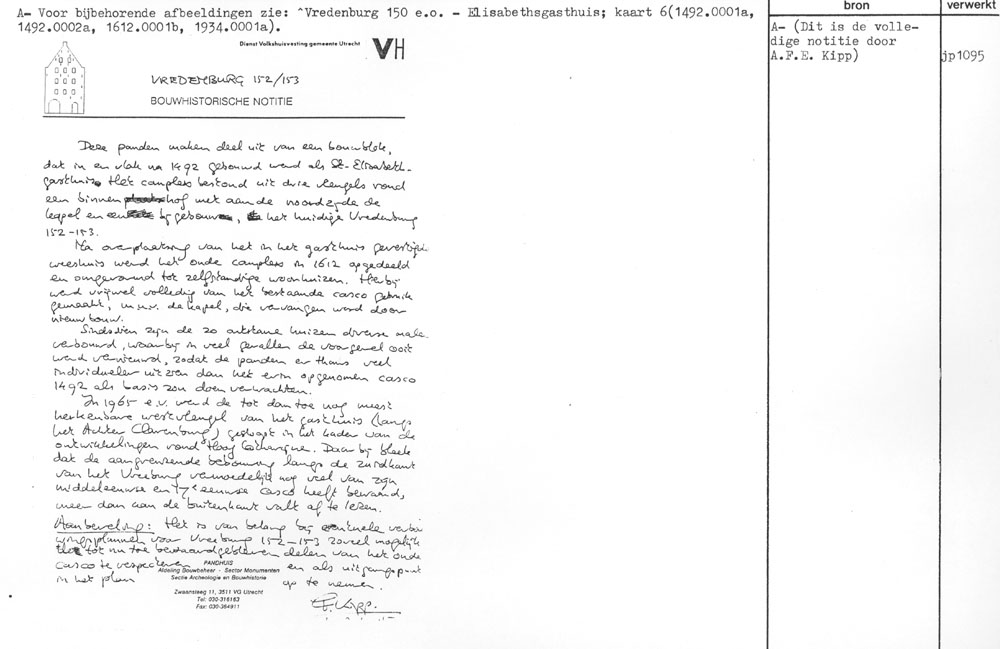 A- Voor bijbehorende afbeeldingen zie: ^Vredenburg 150 e.o. - Elisabethsgasthuis; kaart 6(1492.0001a,
1492.0002a, 1612.0001b, 1934.0001a).
bron
verwerkt
A- (Dit is de volle-
dige notitie door
A.F.E. Kipp)
jp1095
Dienst Volkshuisvesting gemeente Utrecht
VH
VREDENBURG 152/153
BOUWHISTORISCHE NOTITIE
Deze panden maken deel uit van een bouwblok,
dat in en vlak na 1492 gebouwd werd als St-Elisabeth-
gasthuis. Het complex bestond uit drie vleugels rond
een binnenhof met aan de noordzijde de
kapel en bijgebouwen, het huidige Vredenburg
152-153.
Na overplaatsing van het in het gasthuis
weeshuis werd het oude complex in 1612 opgedeeld
en omgevormd tot zelfstandige woonhuizen. Hierbij
werd vrijwel volledig van het bestaande casco gebruik
gemaakt, m.u.v. de kapel, die vervangen werd door
nieuwbouw.
Sindsdien zijn de zo ontstane huizen diverse male
verbouwd, waarbij in veel gevallen de voorgevel ooit
werd vernieuwd, zodat de panden er thans veel
individueler uitzien dan het erin opgenomen casco
1492 als basis zou doen verwachten.
In 1965 e.v. werd de tot dan toe nog meest
herkenbare westvleugel van het gasthuis (langs
het Achter Clarenburg) gesloopt in het kader van de
ontwikkelingen rond Hoog Catharijne. Daarbij bleek
dat de aangrenzende bebouwing langs de zuidkant
van het Vreeburg vermoedelijk nog veel van zijn
middeleeuwse en 17e eeuwse casco heeft bewaard,
meer dan aan de buitenkant valt af te lezen.
Aanbeveling: Het is van belang bij eventuele verbou
wingsplannen voor Vreeburg 152-153 zoveel mogelijk
tot nu toe bewaardgebleven delen van het oude
casco te respecteren en als uitgangspunt
in het plan op te nemen.
PANDHUIS
Afdeling Bouwbeheer - Sector Monumenten
Sectie Archeologie en Bouwhistorie
Zwaansteeg 11, 3511 VG Utrecht
Tel: 030-316163
Fax: 030-364911
Kipp.